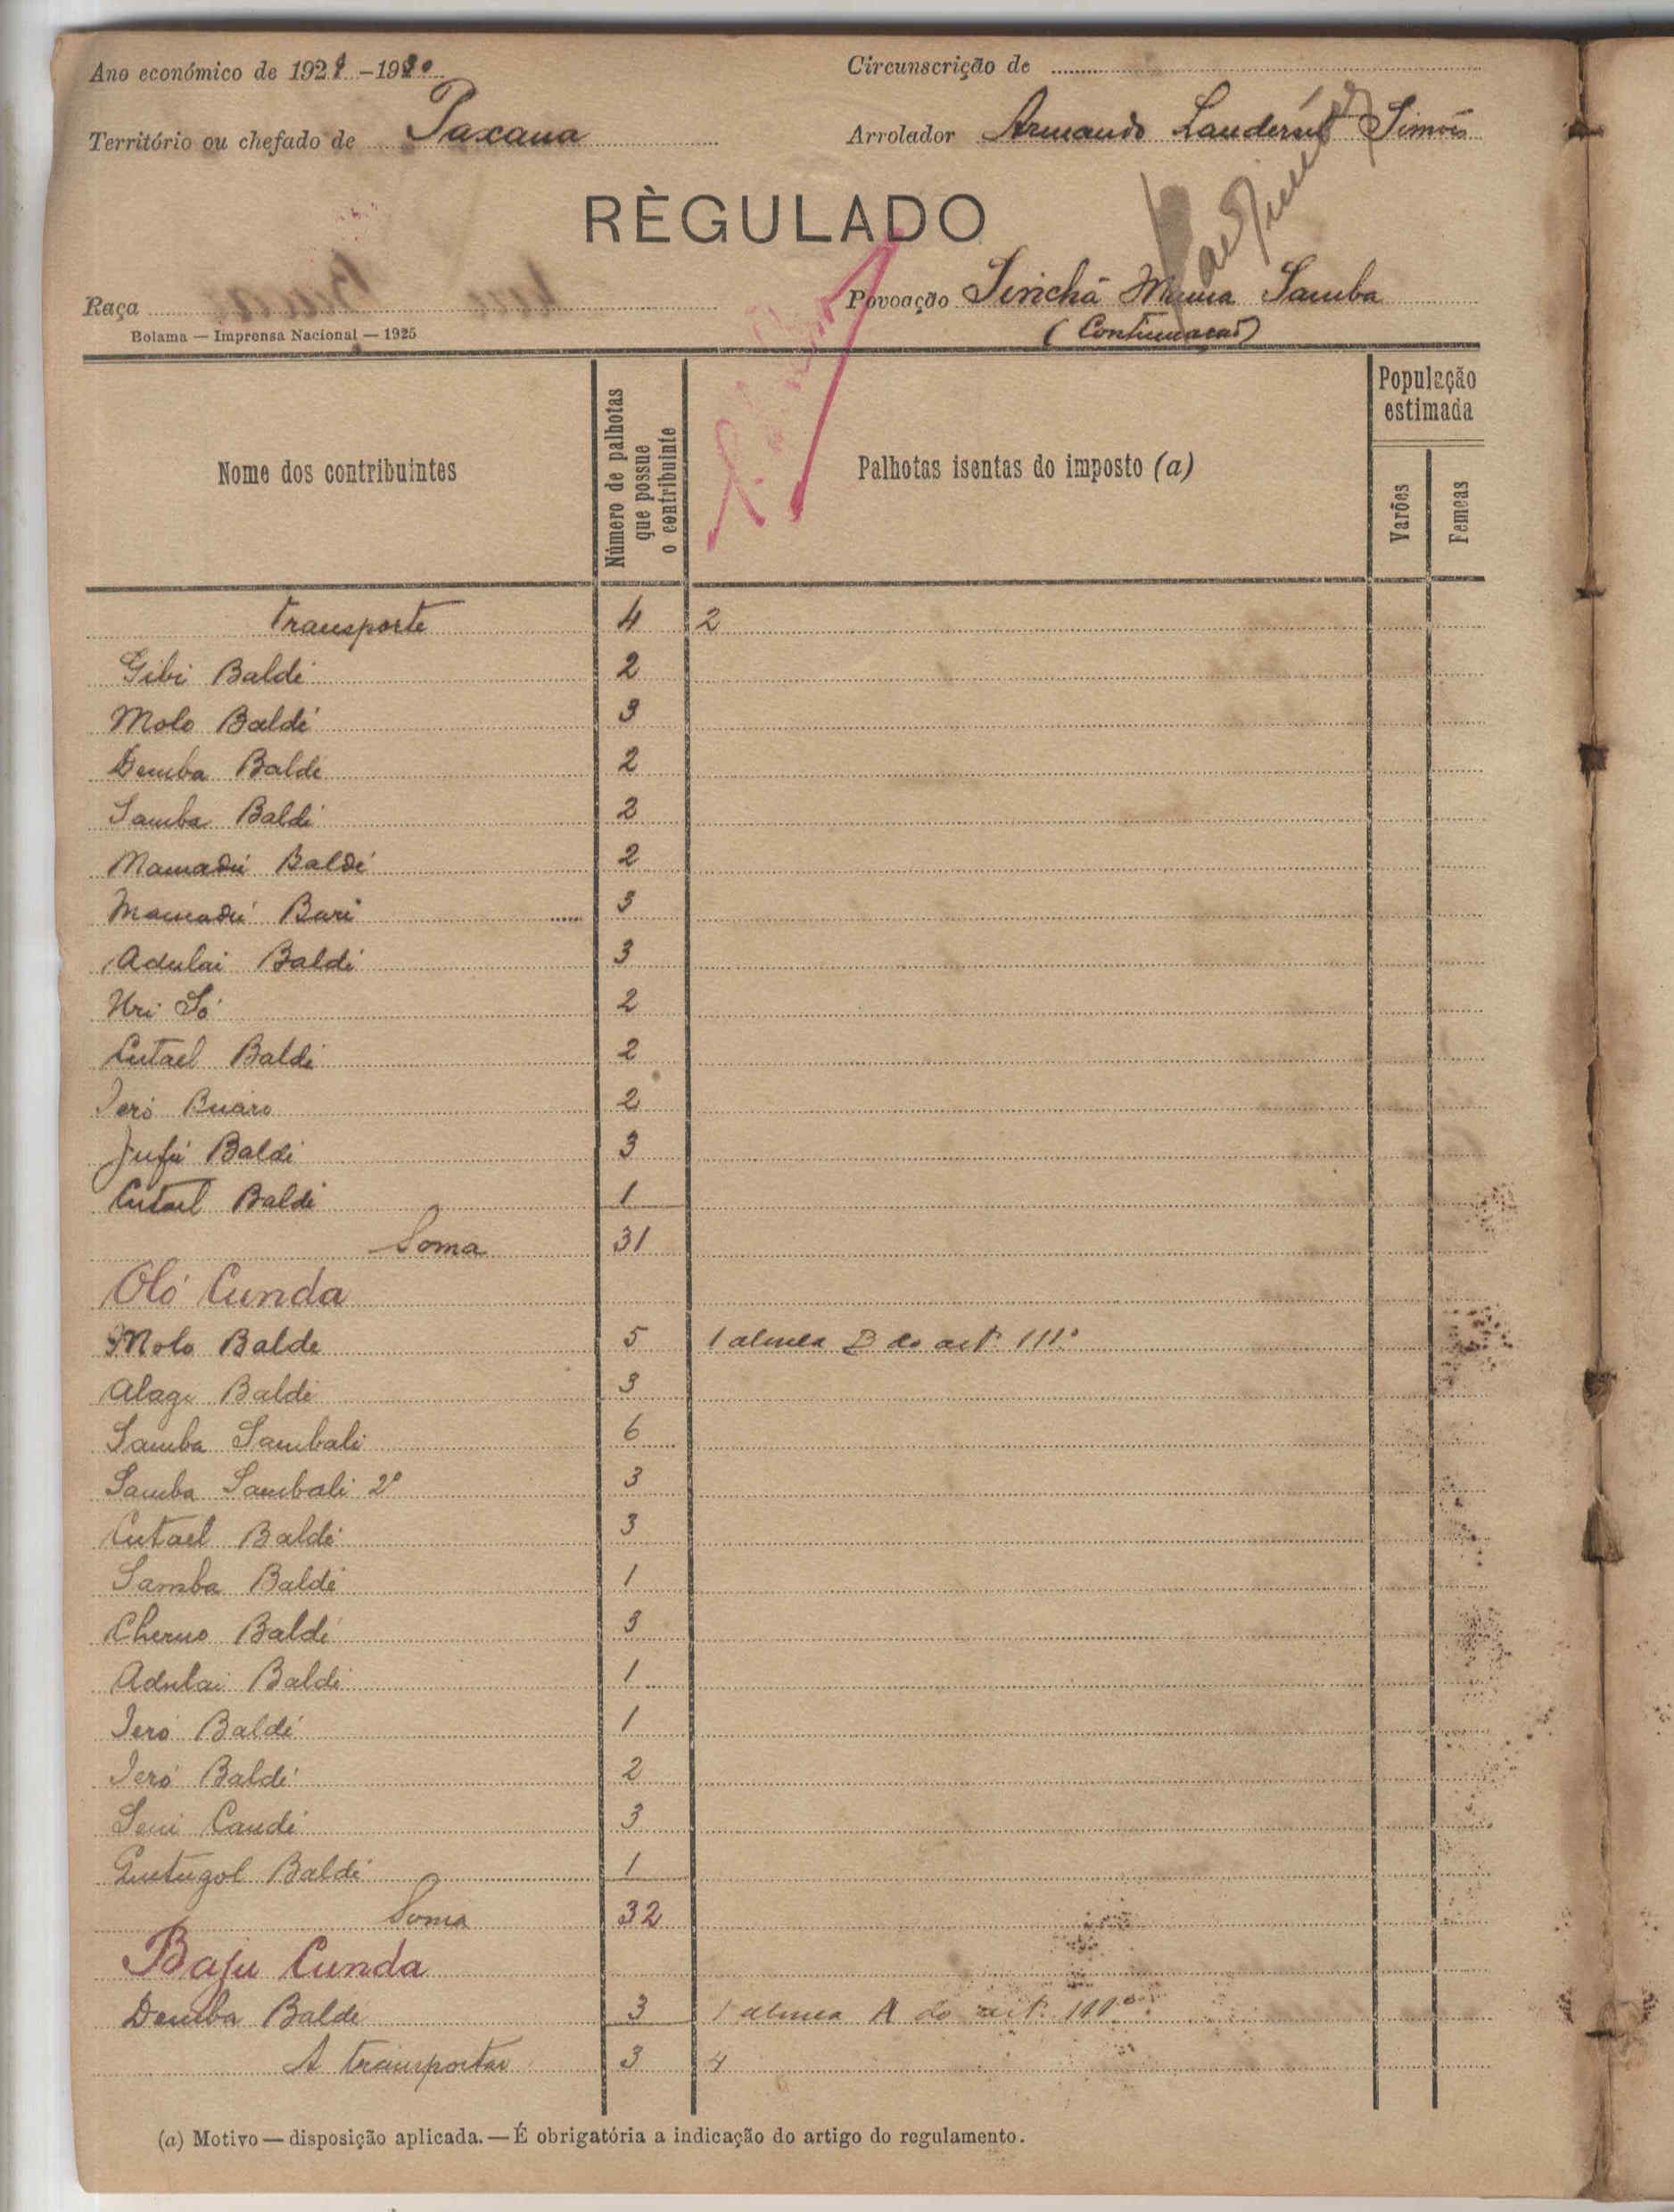 Ano económico de 1929-1930
Circunscrição de
Território ou chefado de Paxana
Arrolador Armando Simões
RÈGULADO
Raça
Povoação Sinchã Muna Samba
(Continuação)
Bolama — Imprensa Nacional — 1925
Nome dos contribuintes
Número de palhotas que possue o contribuinte
Palhotas isentas do imposto (a)
População estimada
Varões
Femeas
Transporte 4 2
Gibi Baldé 2
Molo Baldé 3
Demba Balde 2
Samba Baldé 2
Mamadú Baldé 2
Mamadú Bari 3
Adulai Baldé 3
Uri Só 2
Cutael Baldé 2
Jeró Buaro 2
Jufú Baldé 3
Cutael Baldé 1
Soma 31
Oló Cunda
Molo Balde 5 1 alinea B do art.º 111.º
Alage Baldé 3
Samba Sambali 6
Samba Sambali 2º 3
Cutael Baldé 3
Samba Baldé 1
Cherno Baldé 3
Adulai Baldé 1
Jeró Baldé 1
Jeró Baldé 2
Seni Candé 3
Baldé 1
Soma 32
Baju Cunda
Demba Balde 3 1 alinea A do art.º 111.º
A transportar 3 4
(a) Motivo — disposição aplicada. — É obrigatória a indicação do artigo do regulamento.